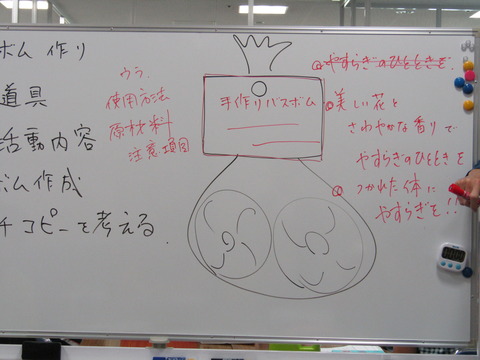 ボム作り
道具
活動内容
ボム作成
チコピーを考える
ウラ
使用方法
原材料
注意項目
手作りバスボム
やすらぎのひとときを
美しい花と
さわやかな香りで
やすらぎのひとときを
つかれた体に
やすらぎを!!